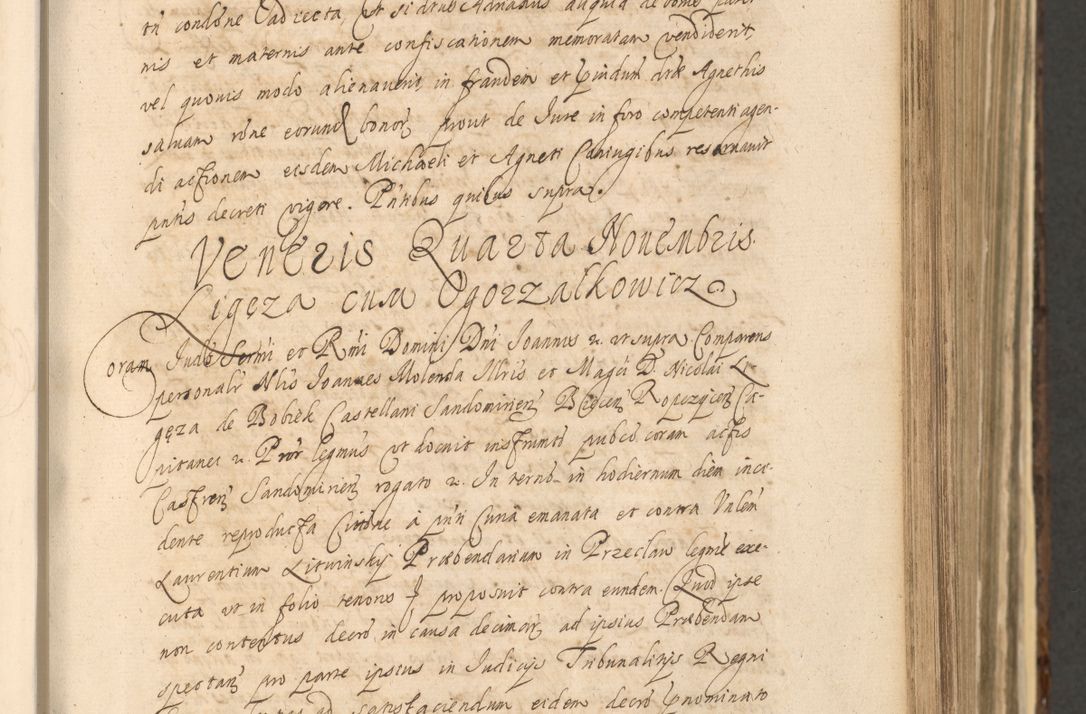 nis et maternis ante confiscationem memoratam vendiderit,
vel quouis modo alienauerit, in fraudem et pntudum dictae Agnethis
saluam rone eorund bonor prout de Jure in foro competenti agen-
di actionem eisdem Michaeli et Agneti Coniugibus reseruauit
pntis decreti vigore. Pntibus quibus supra.
Veneris Quarta Nouembris
Ligęza cum Ogorzalkowicz
Coram Judi Sermi et Rmi Domini Dni Joannis &c. ut supra Comparens
personalr Nlis Joannes Molenda Mris et Magci D. Nicolai Li-
gęza de Bobrek Castellani Sandomirien Biecen Ropczycen Ca-
pitanei &c. Pror legmus ut docuit instrumto pubco coram actis
Castren Sandomirien rogato &c. In termo in hodiernum diem inci-
dente reproducta Citone à pnti Curia emanata et contra Vnlem
Laurentium Litwinsky Præbendarium in Przeclaw legme exe-
cuta ut in folio tenoris proposuit contra eundem. Quod ipse
non contentus decro in causa decimar ad ipsius Præbendam
spectan pro parte ipsius in Judicijs Tribunalitijs Regni
ad satisfaciendum eidem decro pnominato